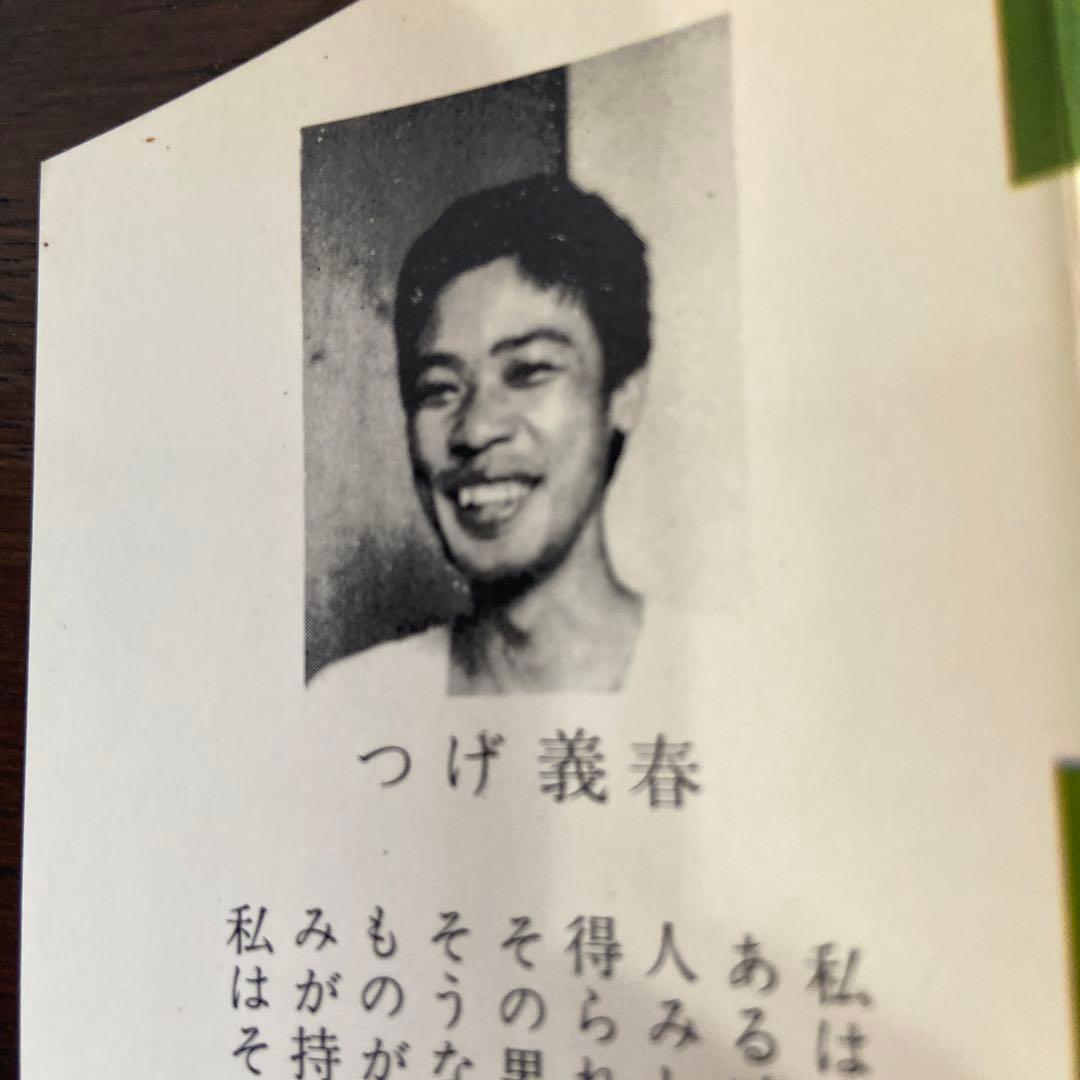 つげ義春
私は
ある
人みし
得られ
その男
そうな
ものが
みが持
私はそ